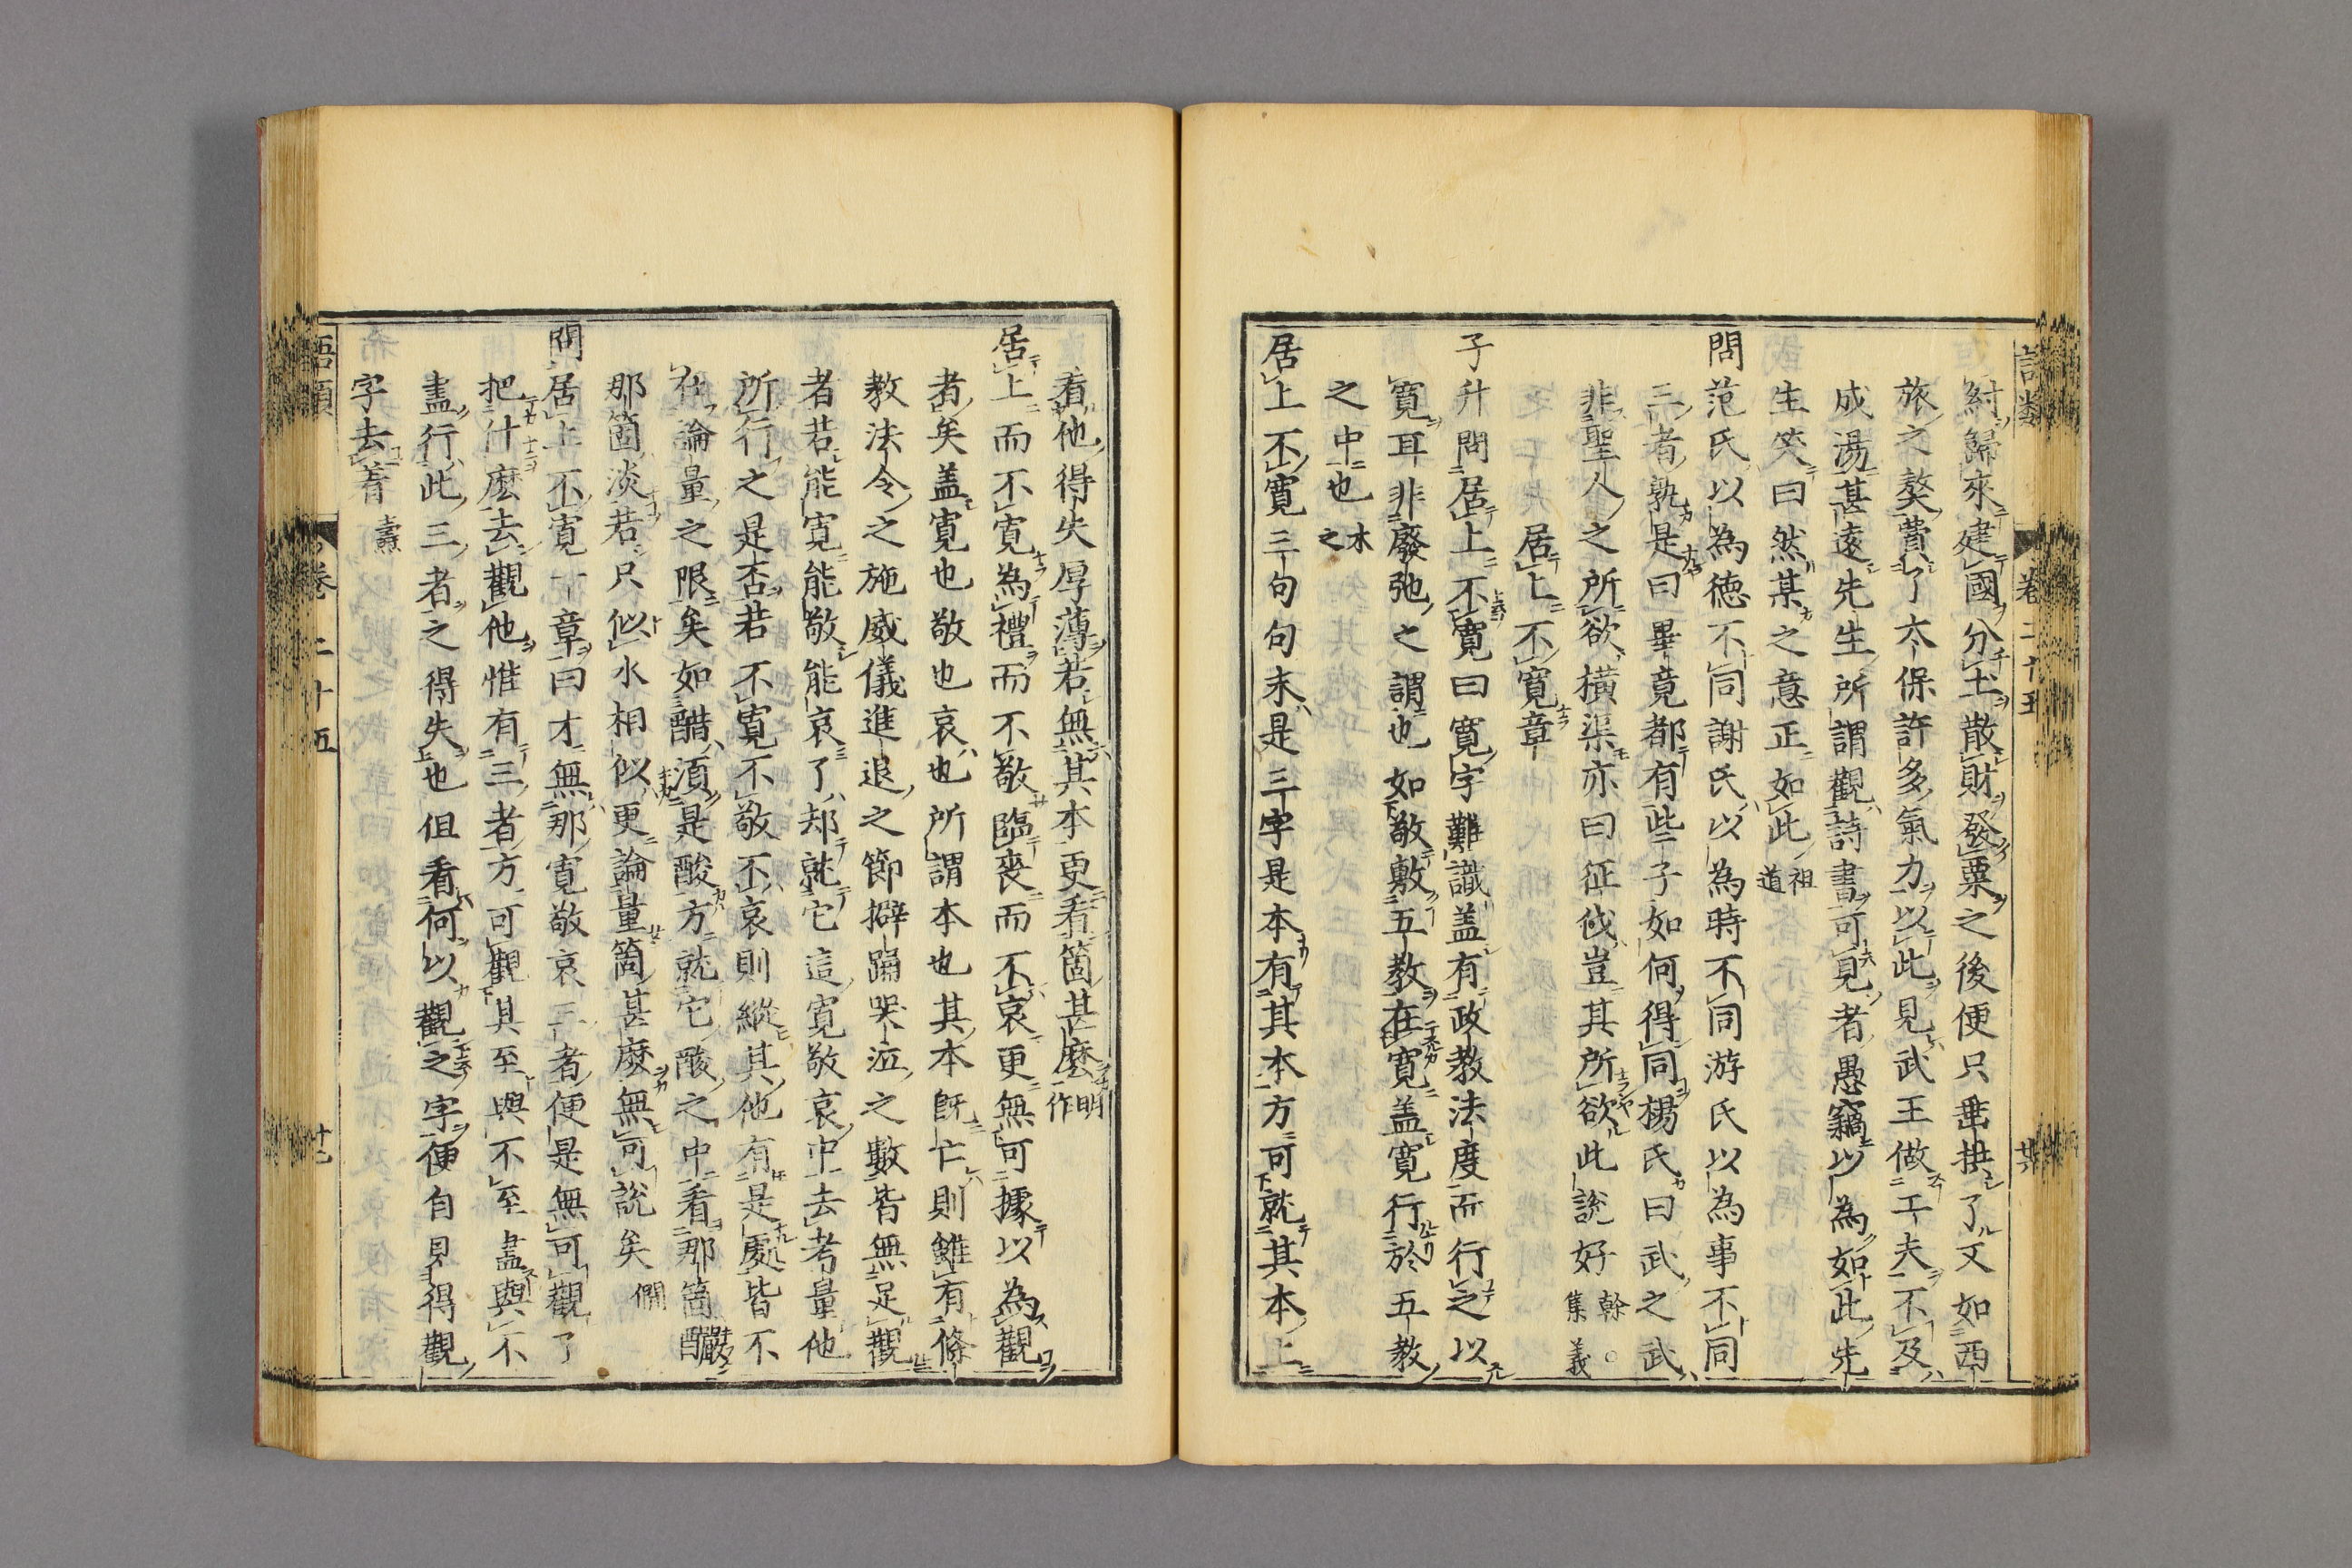 紂歸來建國分土散財發粟之後便只垂拱了又如西
旅之獒費了太保許多氣力以此見武王做工夫不及
成湯甚遠先生所謂觀詩書可見者愚竊以為如此先
生笑曰然某之意正如此 祖道
問范氏以為德不同謝氏以為時不同游氏以為事不同
三者孰是曰畢竟都有些子如何得同楊氏曰武之武
非聖人之所欲橫渠亦曰征伐豈其所欲此說好 榦○集義
居上不寬章
子升問居上不寬曰寬字難識盖有政教法度而行之以
寬耳非廢弛之謂也如敬敷五教在寬盖寬行於五教
之中也 木之
居上不寬三句句末是三字是本有其本方可就其本上
看他得失厚薄若無其本更看箇甚麼 明作
居上而不寬為禮而不敬臨喪而不哀更無可據以為觀
者矣盖寬也敬也哀也所謂本也其本既亡則雖有條
教法令之施威儀進退之節擗踊哭泣之數皆無足觀
者若能寬能敬能哀了却就它這寬敬哀中去考量他
所行之是否若不寬不敬不哀則縱其他有是處皆不
在論量之限矣如醋須是酸方就它酸之中看那箇釅
那箇淡若只似水相似更論量箇甚麼無可說矣 僩
問居上不寬一章曰才無那寬敬哀三者便是無可觀了
把什麼去觀他惟有三者方可觀其至與不至盡與不
盡行此三者之得失也但看何以觀之字便自見得觀
字去着 壽
語類
卷二十五